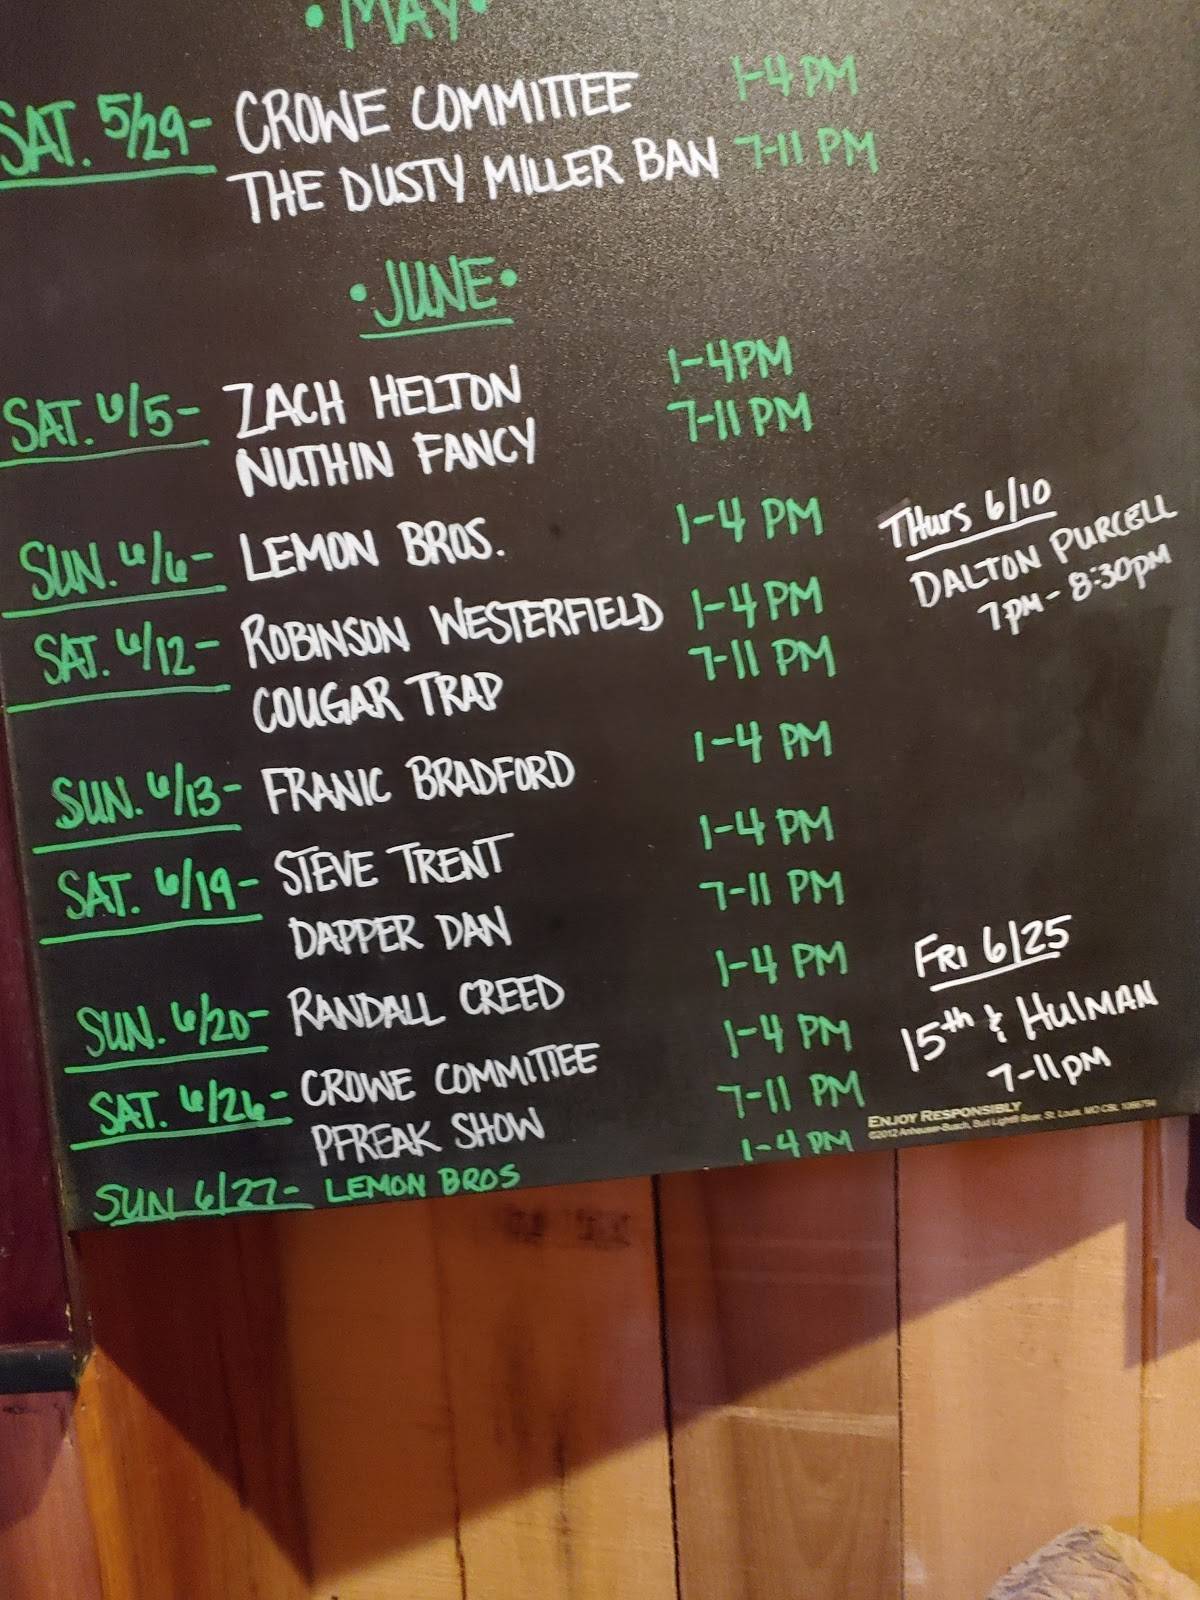 • MAY •
SAT. 5/29- CROWE COMMITTEE 1-4 PM
THE DUSTY MILLER BAN 7-11 PM
• JUNE •
SAT. 6/5- ZACH HELTON 1-4PM
NUTHIN FANCY 7-11 PM
SUN. 6/6- LEMON BROS. 1-4 PM
SAT. 6/12- ROBINSON WESTERFIELD 1-4 PM
COUGAR TRAP 7-11 PM
SUN. 6/13- FRANIC BRADFORD 1-4 PM
SAT. 6/19- STEVE TRENT 1-4 PM
DAPPER DAN 7-11 PM
SUN. 6/20- RANDALL CREED 1-4 PM
SAT. 6/26- CROWE COMMITTEE 1-4 PM
PFREAK SHOW 7-11 PM
SUN 6/27- LEMON BROS 1-4 PM
THURS 6/10
DALTON PURCELL
7PM - 8:30PM
FRI 6/25
15th & HULMAN
7-11PM
ENJOY RESPONSIBLY
©2012 Anheuser-Busch, Bud Light® Beer, St. Louis, MO